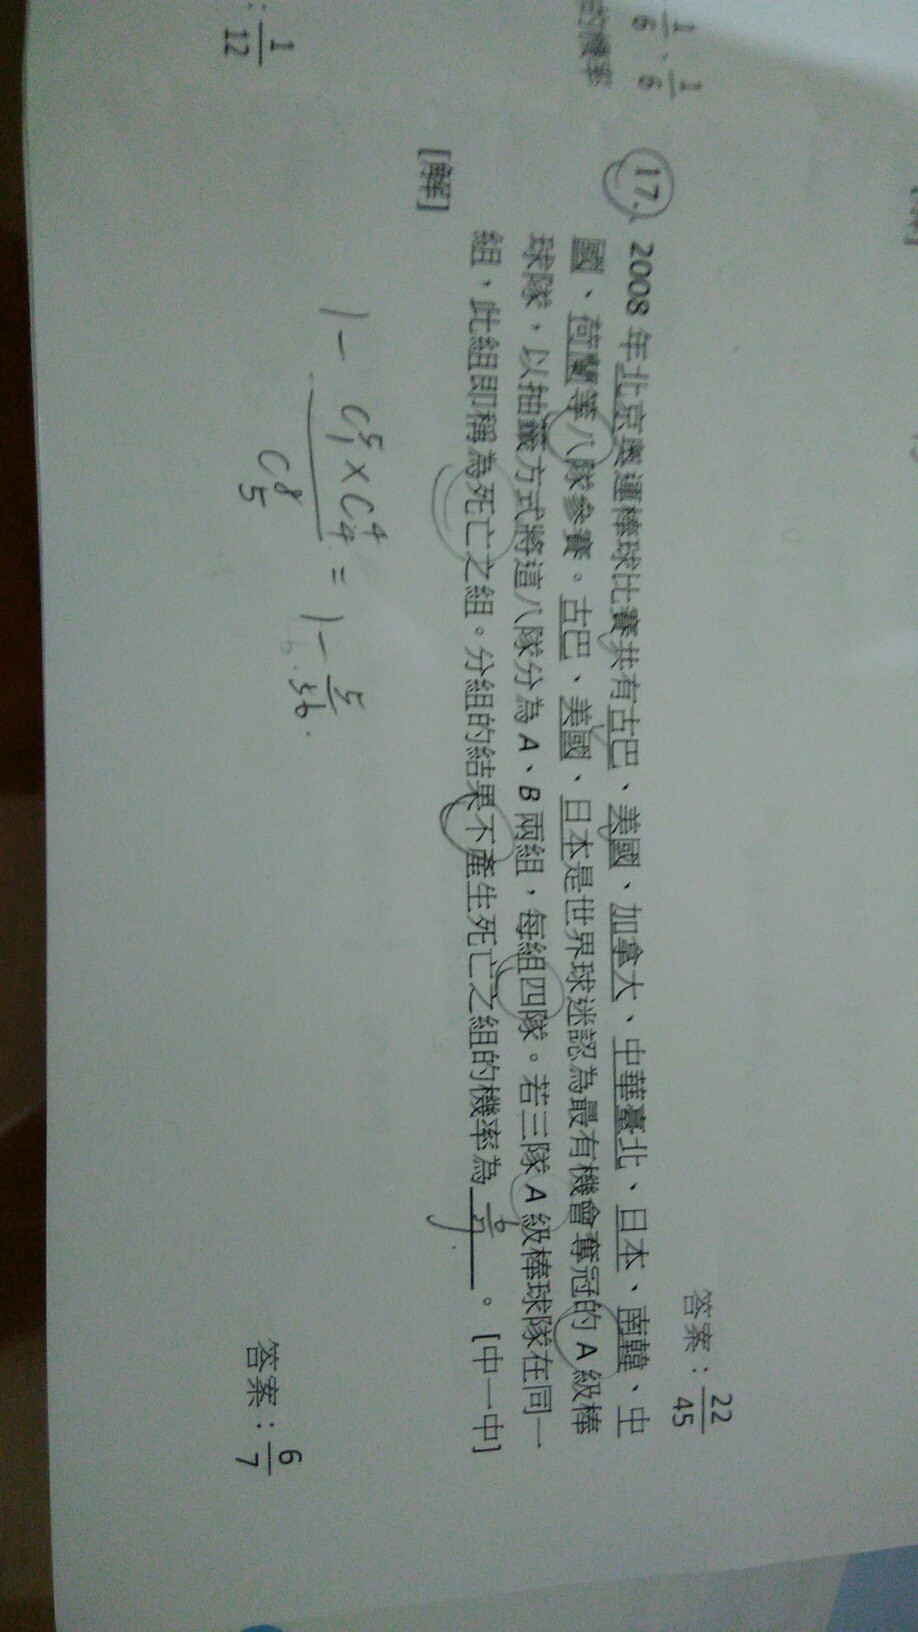 1/6、1/6
的機率
: 1/12
答案：22/45
17. 2008 年北京奧運棒球比賽共有古巴、美國、加拿大、中華臺北、日本、南韓、中
國、荷蘭等八隊參賽。古巴、美國、日本是世界球迷認為最有機會奪冠的 A 級棒
球隊，以抽籤方式將這八隊分為 A、B 兩組，每組四隊。若三隊 A 級棒球隊在同一
組，此組即稱為死亡之組。分組的結果不產生死亡之組的機率為 6/7 。 [中一中]
[解]
1 - C⁵₁×C⁴₄ / C⁸₅ = 1 - 5/56.
答案：6/7